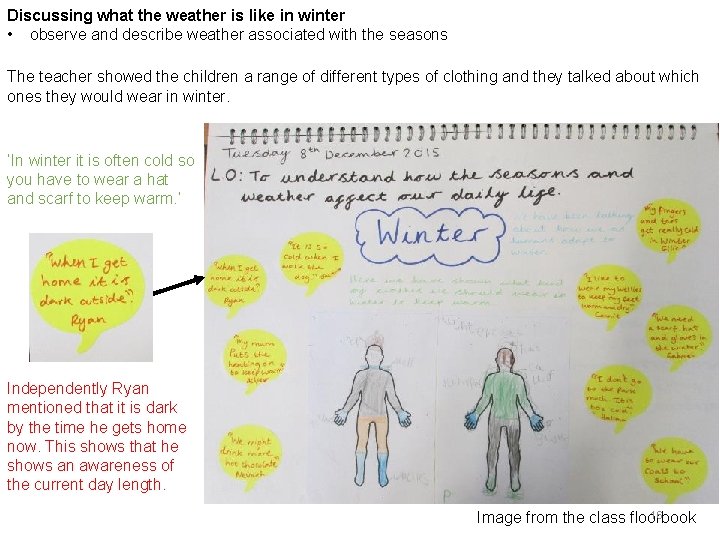 Discussing what the weather is like in winter
• observe and describe weather associated with the seasons
The teacher showed the children a range of different types of clothing and they talked about which
ones they would wear in winter.
‘In winter it is often cold so
you have to wear a hat
and scarf to keep warm.’
"When I get
home it is
dark outside."
Ryan
Independently Ryan
mentioned that it is dark
by the time he gets home
now. This shows that he
shows an awareness of
the current day length.
Tuesday 8th December 2015
LO: To understand how the seasons and
weather affect our daily life.
Winter
We have been talking
about how we as
humans adapt to
winter.
Here we have shown what kind
winter to keep warm.
"It is so
cold when I
walk the
dog."
"When I get
home it is
dark outside"
Ryan
"My mum
puts the
heating on
to keep warm"
"We might
drink more
hot chocolate"
"My fingers
and toes
get really cold
in winter"
Ellie
"I like to
wear my wellies
to keep my feet
warm and dry"
"We need
a scarf, hat
and gloves in
the winter"
"I don't go
to the park
much. It is
too cold"
"We have
to wear our
coats to
school"
Image from the class floorbook